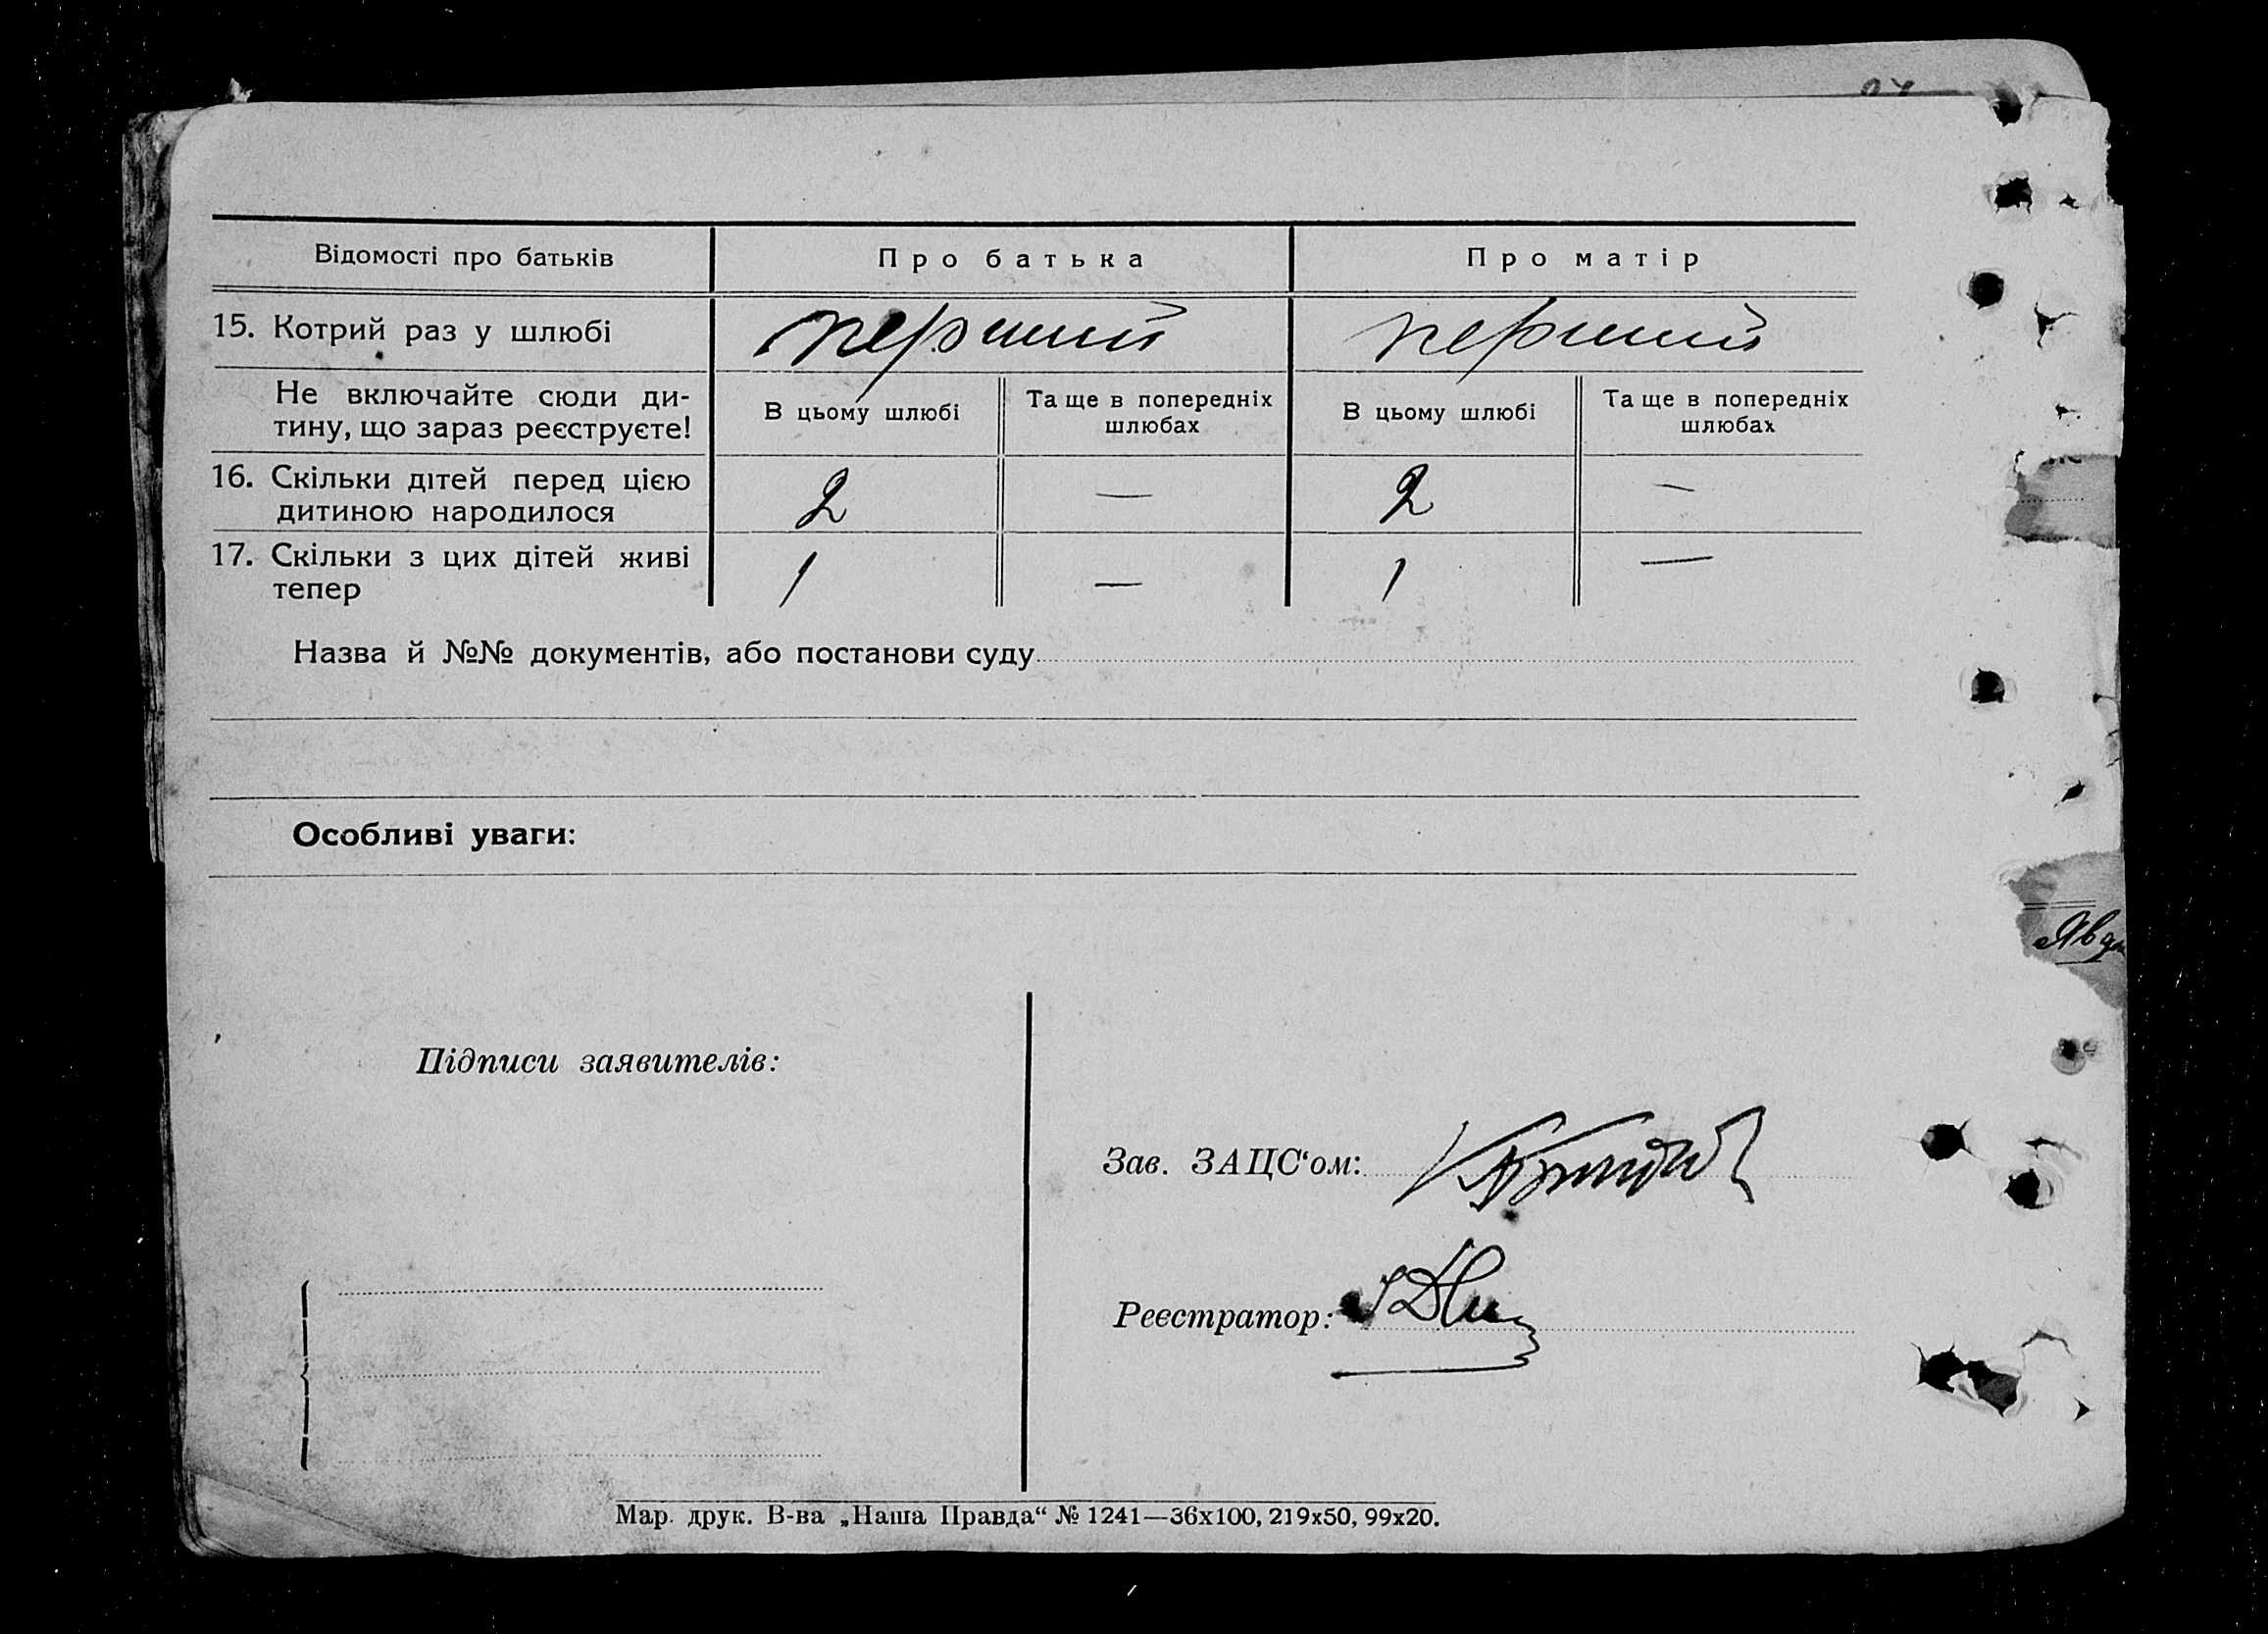 Відомості про батьків
Про батька
Про матір
15. Котрий раз у шлюбі
перший
перший
Не включайте сюди ди-
тину, що зараз реєструєте!
В цьому шлюбі
Та ще в попередніх
шлюбах
В цьому шлюбі
Та ще в попередніх
шлюбах
16. Скільки дітей перед цією
дитиною народилося
2
—
2
—
17. Скільки з цих дітей живі
тепер
1
—
1
—
Назва й №№ документів, або постанови суду
Особливі уваги:
Підписи заявителів:
Зав. ЗАЦС‘ом:
Реєстратор:
Мар. друк. В-ва „Наша Правда“ № 1241—36х100, 219х50, 99х20.